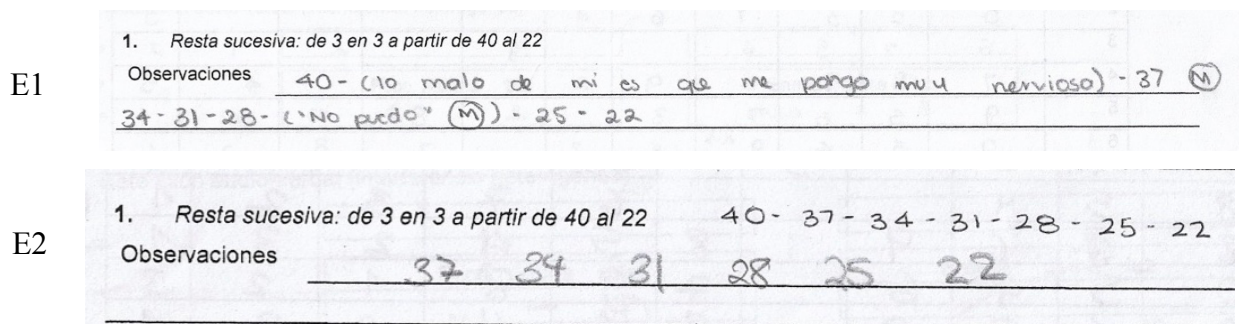 E1
1. Resta sucesiva: de 3 en 3 a partir de 40 al 22
Observaciones 40 - (lo malo de mi es que me pongo muy nervioso) - 37 (M)
34 - 31 - 28 - ("No puedo" (M)) - 25 - 22
E2
1. Resta sucesiva: de 3 en 3 a partir de 40 al 22 40 - 37 - 34 - 31 - 28 - 25 - 22
Observaciones 37 34 31 28 25 22